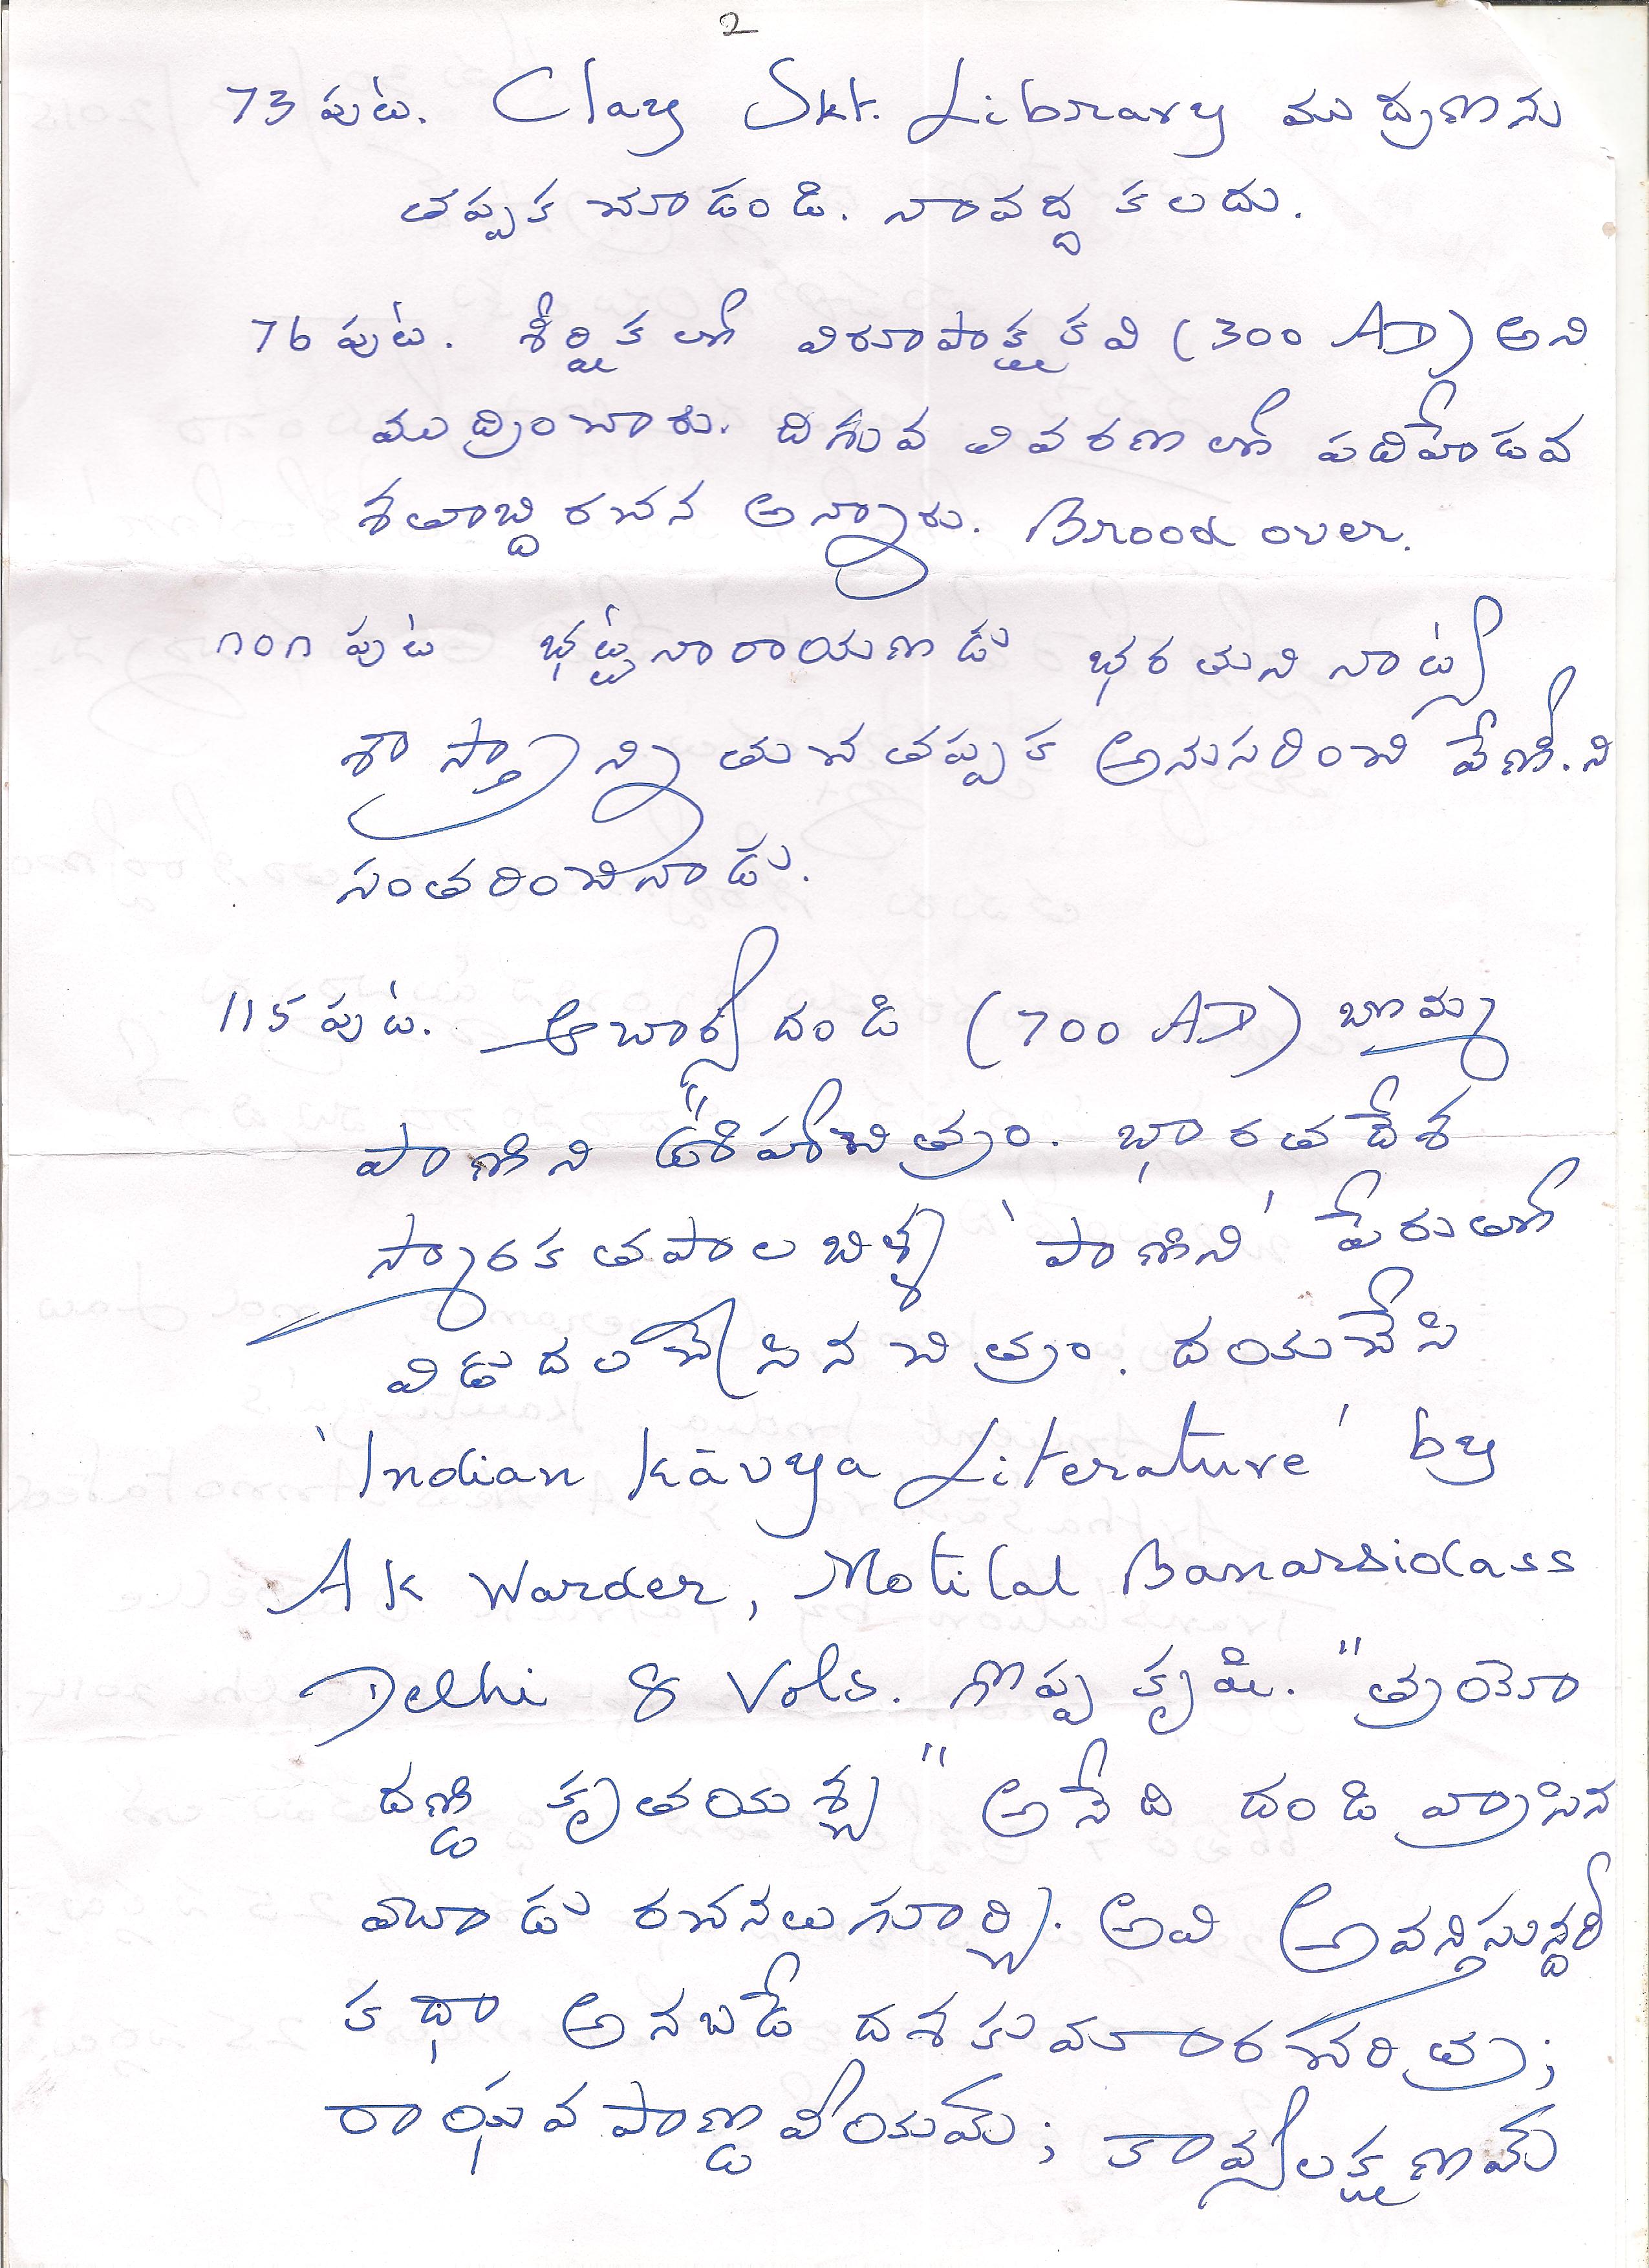 2
73 పుట. Clay Skt. Library ముద్రణను
తప్పక చూడండి. నావద్ద కలదు.
76 పుట. శీర్షికలో విరూపాక్షకవి (300 AD) అని
ముద్రించారు. దిగువ వివరణలో పదిహేడవ
శతాబ్ది రచన అన్నారు. Brood over.
౧౦౧ పుట భట్టనారాయణుడు భరతుని నాట్య
శాస్త్రాన్ని తుచ తప్పక అనుసరించి వేణీ.ని
సంతరించినాడు.
115 పుట. ఆచార్య దండి (700 AD) బొమ్మ
పాణిని ఊహాచిత్రం. భారతదేశ
స్మారక తపాలబిళ్ళ 'పాణిని' పేరుతో
విడుదలచేసిన చిత్రం. దయచేసి
'Indian Kāvya Literature' by
A K Warder, Motilal Banarsidass
Delhi 8 Vols. గొప్ప కృషి. "త్రయో
దణ్డి కృతయశ్చ" అనేది దండి వ్రాసిన
మూడు రచనలు గూర్చి. అవి అవన్తిసున్దరీ
కథా అనబడే దశకుమారచరిత్ర;
రాఘవపాణ్డవీయమ్; కావ్యలక్షణమ్